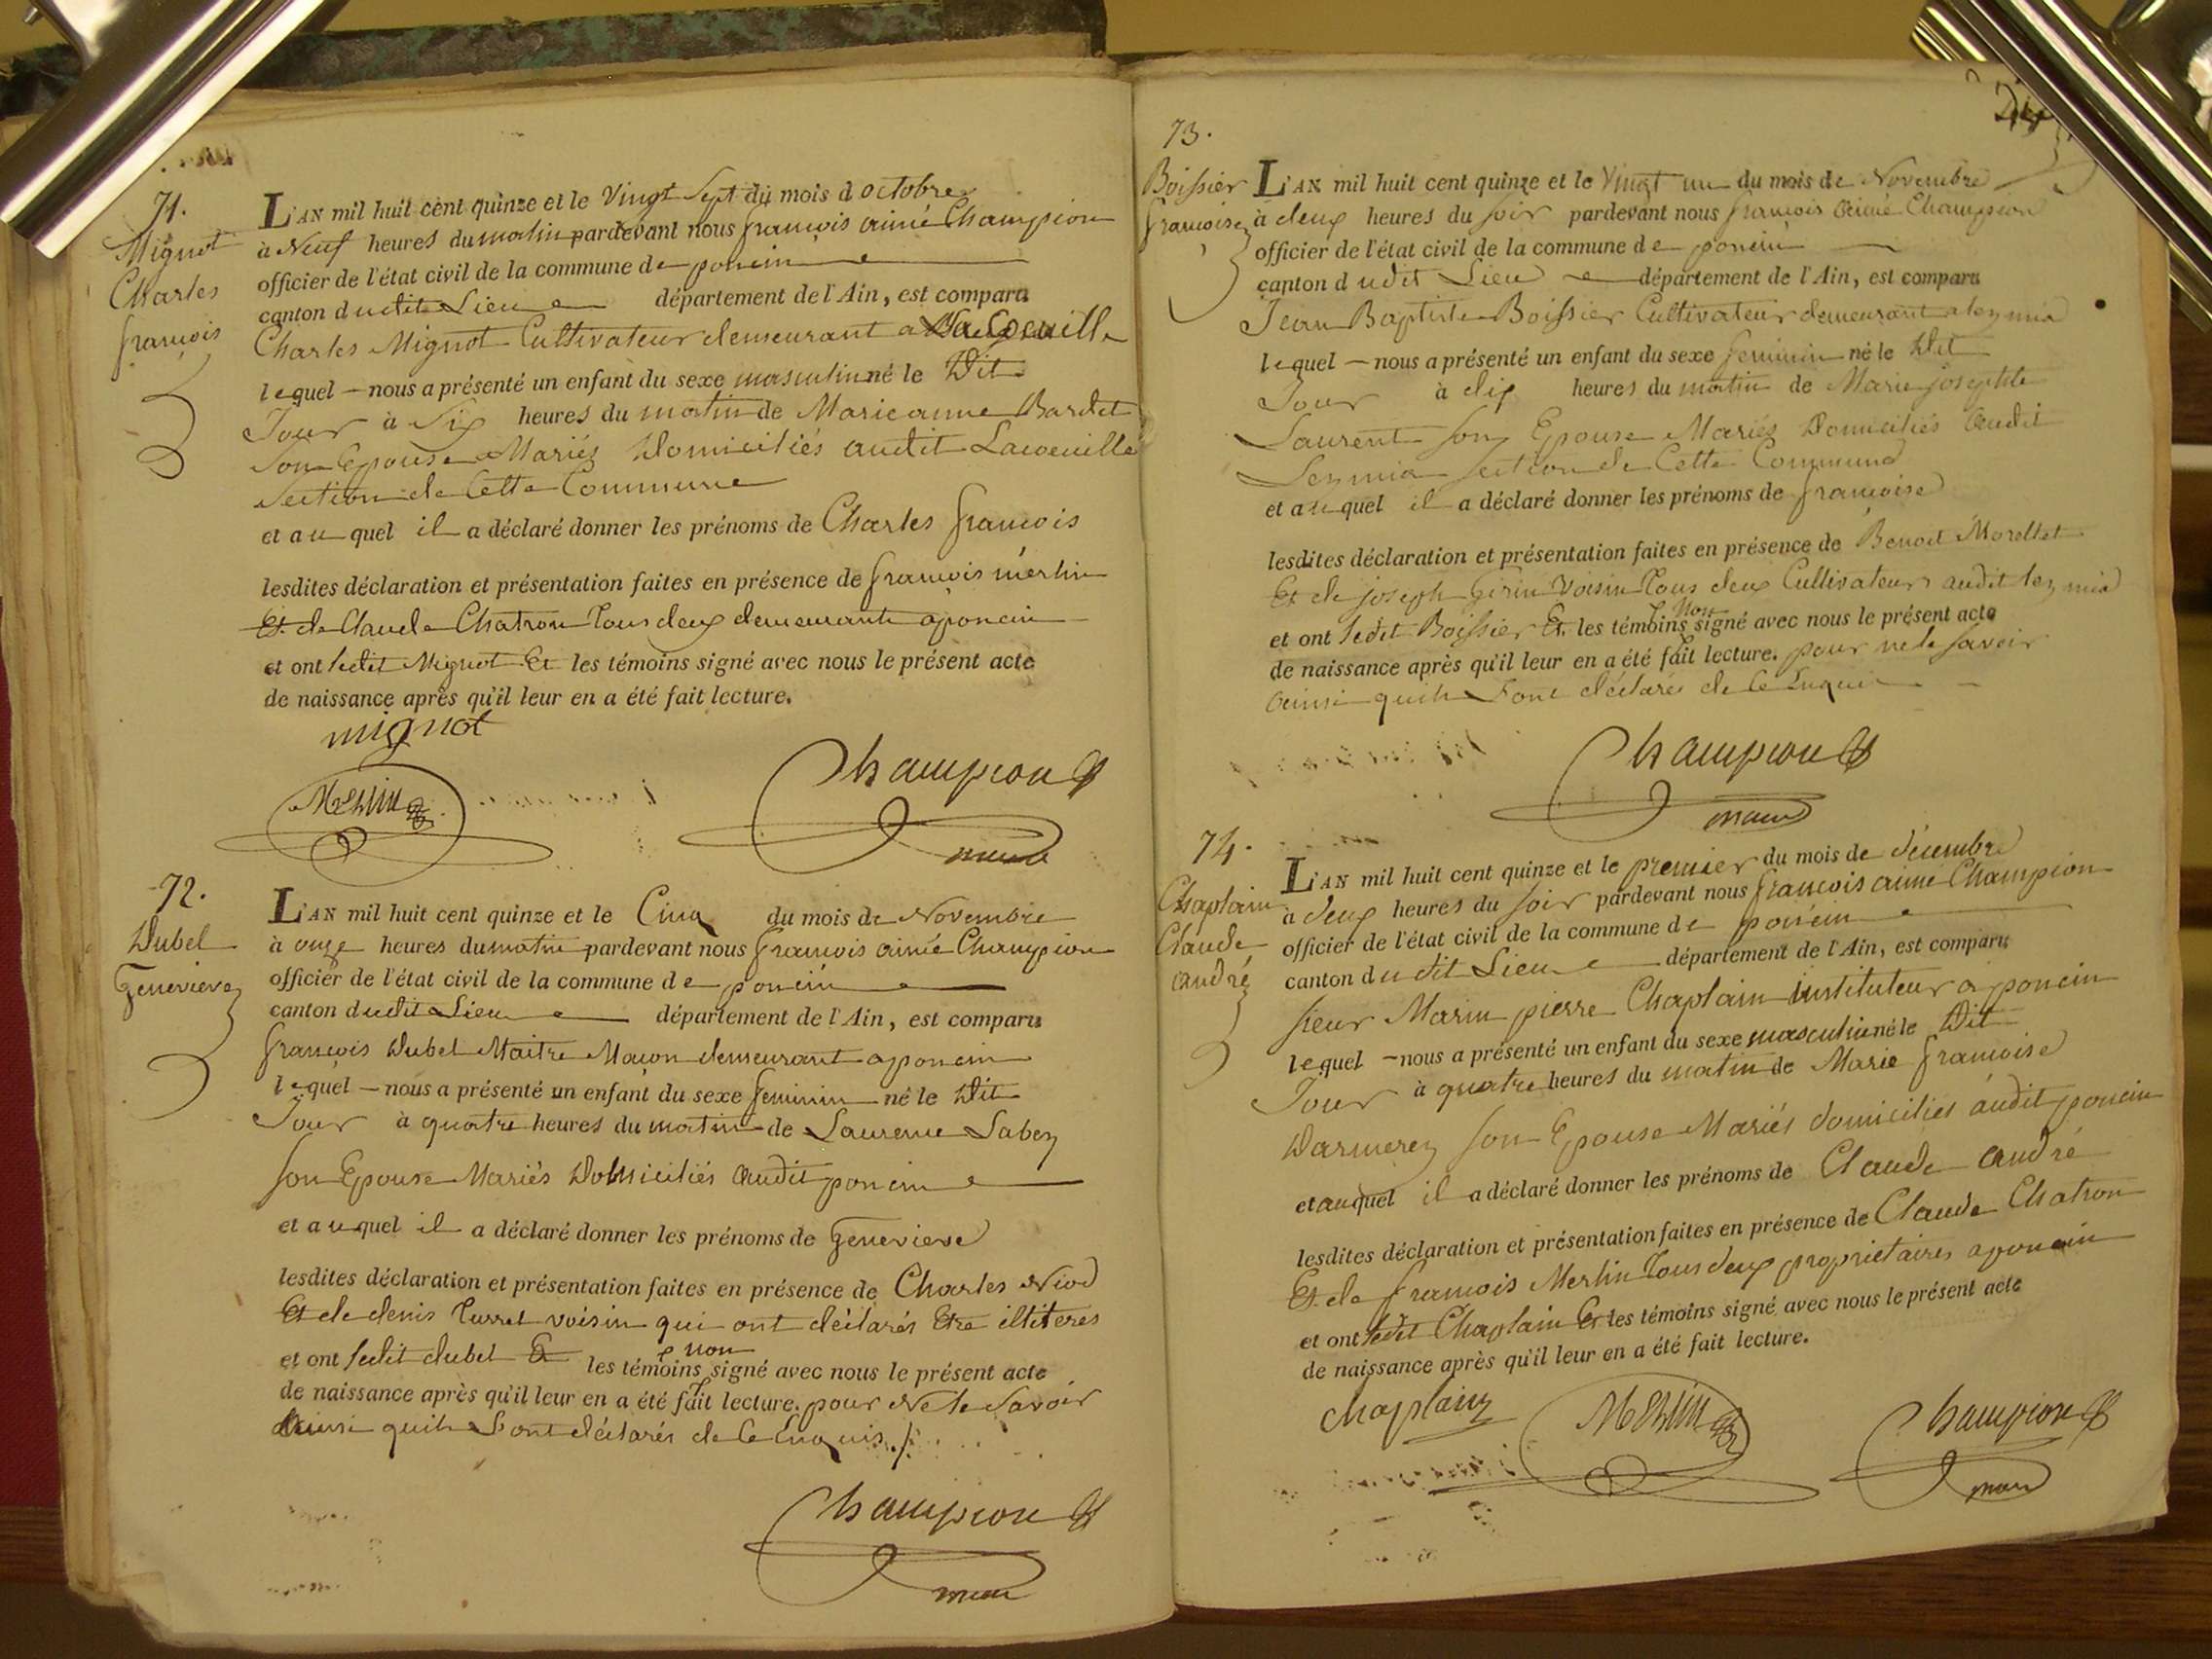 71.
Mignot
Charles
françois
L'AN mil huit cent quinze et le Vingt Sept du mois d octobre
à Neuf heures du matin pardevant nous françois aimé Champion
officier de l'état civil de la commune de poncin
canton dudit Lieu département de l'Ain, est comparu
Charles Mignot Cultivateur demeurant a La Coeuille
lequel nous a présenté un enfant du sexe masculin né le Dit
Jour à Six heures du matin de Marieanne Bardet
Son Epouse Mariés Domiciliés audit Lacoeuille
Section de Cette Commune
et auquel il a déclaré donner les prénoms de Charles françois
lesdites déclaration et présentation faites en présence de françois mérlin
Et de Claude Chatron Tous deux demeurants aponcin
et ont ledit Mignot Et les témoins signé avec nous le présent acte
de naissance après qu'il leur en a été fait lecture.
mignot
Merlin
Champion
maire
72.
Dubel
Genevieve
L'AN mil huit cent quinze et le Cinq du mois de Novembre
à onze heures du matin pardevant nous françois aimé Champion
officier de l'état civil de la commune de poncin
canton dudit Lieu département de l'Ain, est comparu
françois Dubel Maitre Maçon demeurant aponcin
lequel nous a présenté un enfant du sexe feminin né le Dit
Jour à quatre heures du matin de Laurence Sabey
son Epouse Mariés Domiciliés audit poncin
et auquel il a déclaré donner les prénoms de Genevieve
lesdites déclaration et présentation faites en présence de Charles Niod
Et de denis Turrel voisin qui ont déclarés Etre illiteres
et ont ledit dubel Et les témoins non signé avec nous le présent acte
de naissance après qu'il leur en a été fait lecture. pour Ne le Savoir
Ainsi quils Lont déclarés de Ce Enquis ./.
Champion
maire
73.
Boissier
françoise
L'AN mil huit cent quinze et le Vingt un du mois de Novembre
à deux heures du soir pardevant nous françois Aimé Champion
officier de l'état civil de la commune de poncin
canton dudit Lieu département de l'Ain, est comparu
Jean Baptiste Boissier Cultivateur demeurant a leymia
lequel nous a présenté un enfant du sexe feminin né le Dit
Jour à dix heures du matin de Marie josephte
Laurent son Epouse Mariés Domiciliés Audit
Leymia section de Cette Commune
et auquel il a déclaré donner les prénoms de françoise
lesdites déclaration et présentation faites en présence de Benoit Morellet
Et de joseph Girin voisin Tous deux Cultivateurs audit leymia
et ont ledit Boissier Et les témoins Non signé avec nous le présent acte
de naissance après qu'il leur en a été fait lecture. pour ne le savoir
Ainsi quils Lont déclarés de Ce Enquis
Champion
maire
74.
Chaplain
Claude
andré
L'AN mil huit cent quinze et le premier du mois de décembre
à deux heures du soir pardevant nous françois aimé Champion
officier de l'état civil de la commune de poncin
canton dudit Lieu département de l'Ain, est comparu
sieur Marin pierre Chaplain instituteur a poncin
lequel nous a présenté un enfant du sexe masculin né le Dit
Jour à quatre heures du matin de Marie françoise
Darmerey son Epouse Mariés domiciliés audit poncin
et auquel il a déclaré donner les prénoms de Claude andré
lesdites déclaration et présentation faites en présence de Claude Chatron
Et de françois Merlin Tous deux propriétaires aponcin
et ont ledit Chaplain Et les témoins signé avec nous le présent acte
de naissance après qu'il leur en a été fait lecture.
Chaplain
Merlin
Champion
maire